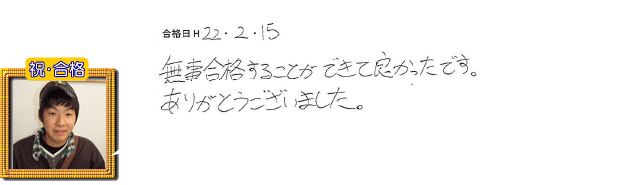 合格日 H 22・2・15
祝・合格
無事合格することができて良かったです。
ありがとうございました。